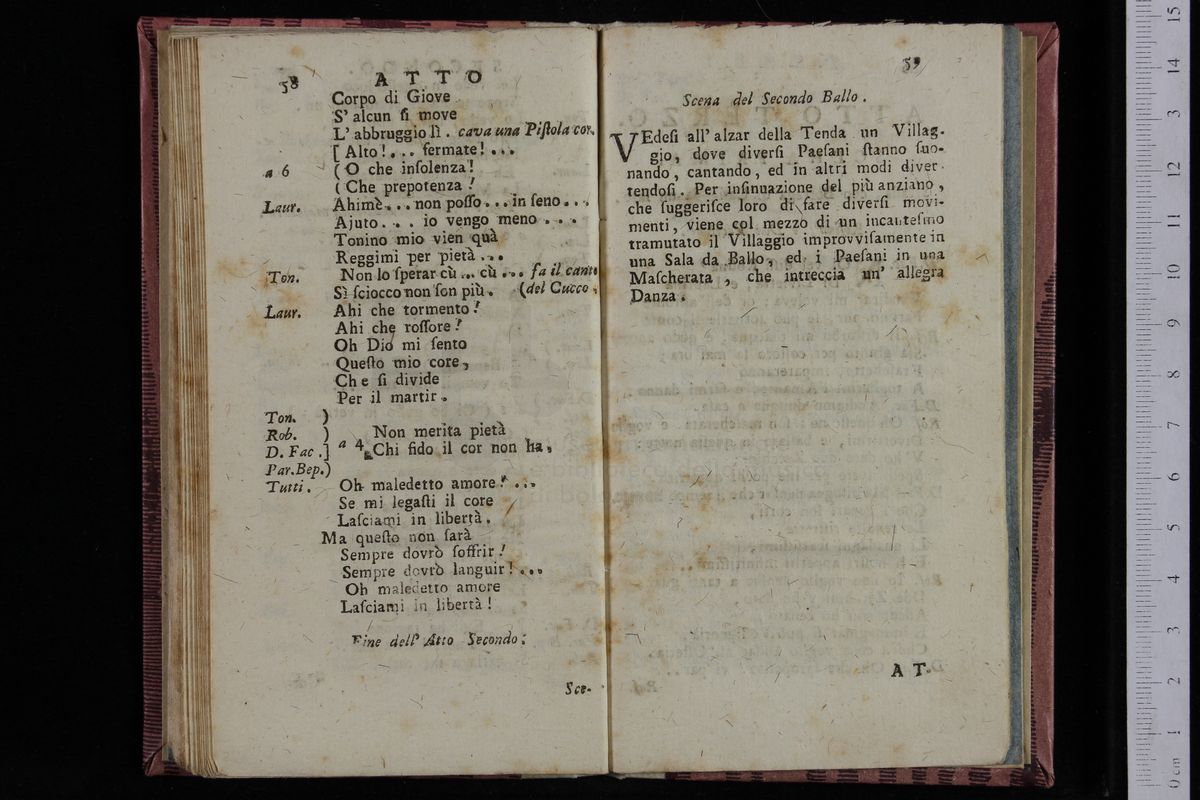 58 ATTO
Corpo di Giove
S' alcun ſi move
L' abbruggio lì . cava una Piſtola cor.
[ Alto!... fermate!...
a 6 ( O che inſolenza!
( Che prepotenza!
Laur. Ahimè... non poſſo... in ſeno...
Ajuto... io vengo meno...
Tonino mio vien quà
Reggimi per pietà...
Ton. Non lo ſperar cù... cù... fa il canto
Sì ſciocco non ſon più. (del Cucco.
Laur. Ahi che tormento!
Ahi che roſſore!
Oh Dio mi ſento
Queſto mio core,
Che ſi divide
Per il martir.
Ton. )
Rob. ) Non merita pietà
D. Fac.] a 4 Chi fido il cor non ha,
Par.Bep.)
Tutti. Oh maledetto amore!...
Se mi legaſti il core
Laſciami in libertà.
Ma queſto non ſarà
Sempre dovrò ſoffrir!
Sempre dovrò languir!...
Oh maledetto amore
Laſciami in libertà!
Fine dell' Atto Secondo.
Sce-
59
Scena del Secondo Ballo.
VEdeſi all' alzar della Tenda un Villag-
gio, dove diverſi Paeſani ſtanno ſuo-
nando, cantando, ed in altri modi diver-
tendoſi. Per inſinuazione del più anziano,
che ſuggeriſce loro di fare diverſi movi-
menti, viene col mezzo di un incanteſmo
tramutato il Villaggio improvviſamente in
una Sala da Ballo, ed i Paeſani in una
Maſcherata, che intreccia un' allegra
Danza.
AT-
15
14
13
12
11
10
9
8
7
6
5
4
3
2
1
0 cm